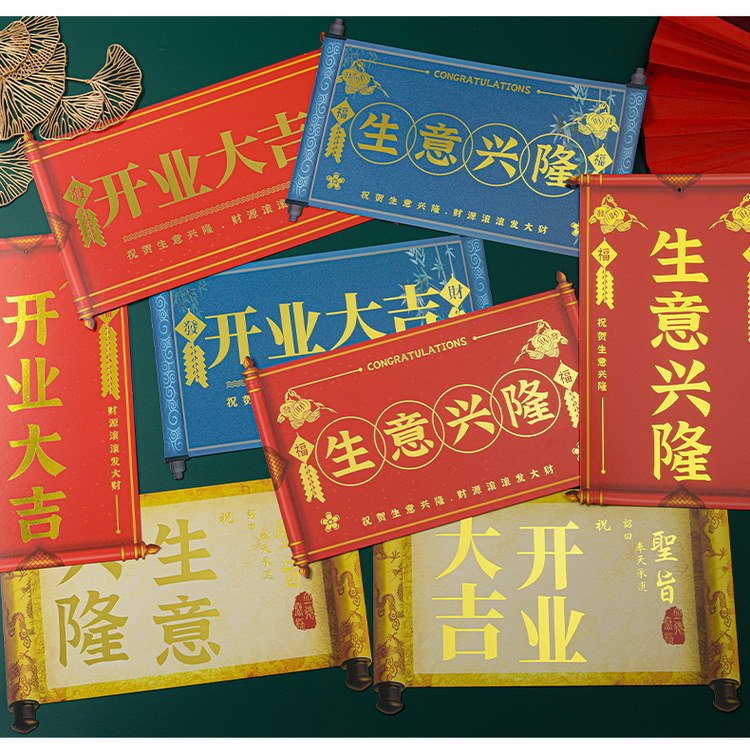 开业大吉
祝贺生意兴隆、财源滚滚
CONGRATULATIONS
福
生意兴隆
福
祝贺生意兴隆、财源滚滚发大财
發
开业大吉
財
祝
CONGRATULATIONS
福
生意兴隆
福
祝贺生意兴隆、财源滚滚发大财
开业大吉
财源滚滚发大财
福
生意兴隆
祝贺生意兴隆
旨
奉天承运
詔曰
祝
生意
兴隆
聖旨
奉天承运
詔曰
祝
开业
大吉